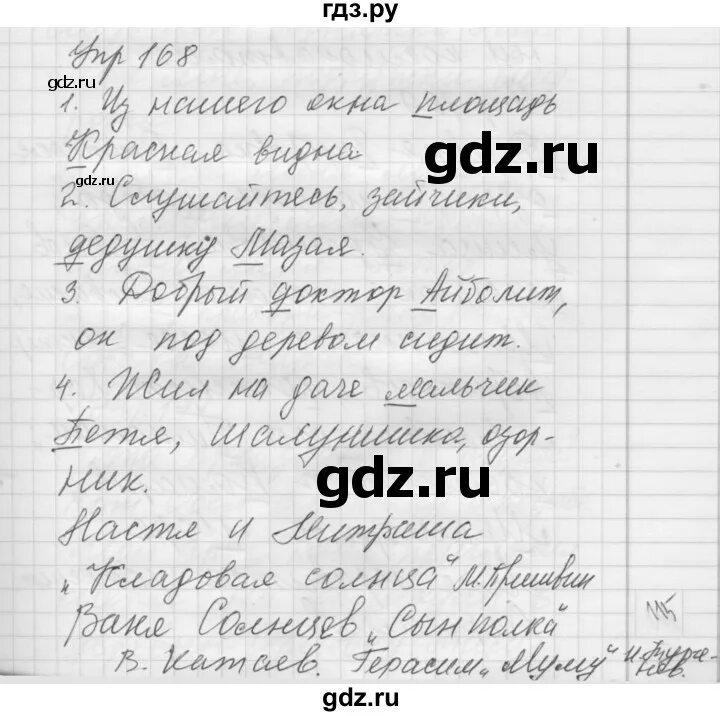 гдз.ру
Упр 168
gdz.ru
1. Из нашего окна площадь
Красная видна
gdz.ru
2. Слушайтесь, зайчики,
gdz.ru
дедушку Мазая.
3. Добрый доктор Айболит,
он под деревом сидит.
4. Жил на даче мальчик
Петя, шалунишка, озор-
ник.
gdz.ru
Настя и Митраша
„Кладовая солнца“ М. Пришвин
Ваня Солнцев „Сын полка“
115
В. Катаев. Герасим „Муму“ И. Турге-
нев.
gdz.ru
gdz.ru
гдз.ру